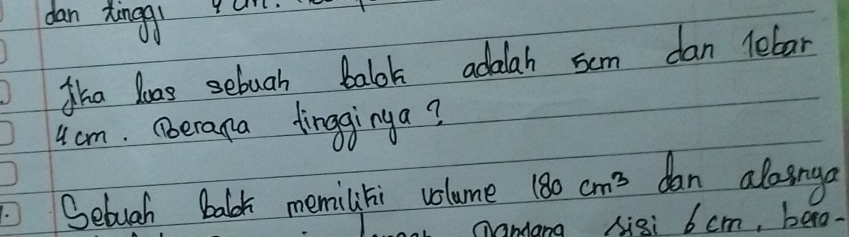 dan tinggi 4 cm.
Jika luas sebuah balok adalah 5cm dan lebar
4 cm. Berapa tingginya?
Sebuah balok memiliki volume 180 cm³ dan alasnya
panjang sisi 6 cm, bera-